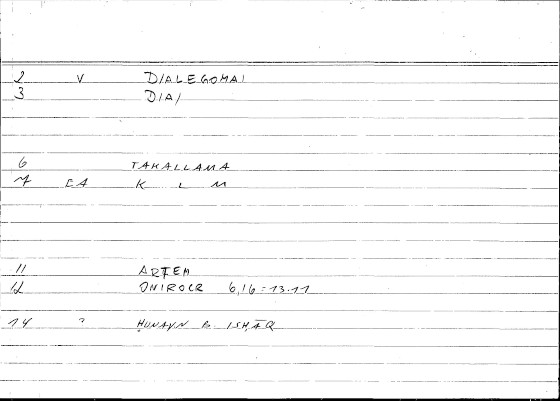 2 V DIALEGOMAI
3 DIA/
6 TAKALLAMA
7 EA K L M
11 ARTEM
12 ONIROCR 6,16 = 13.11
14 ? ḤUNAYN B. ISḤĀQ